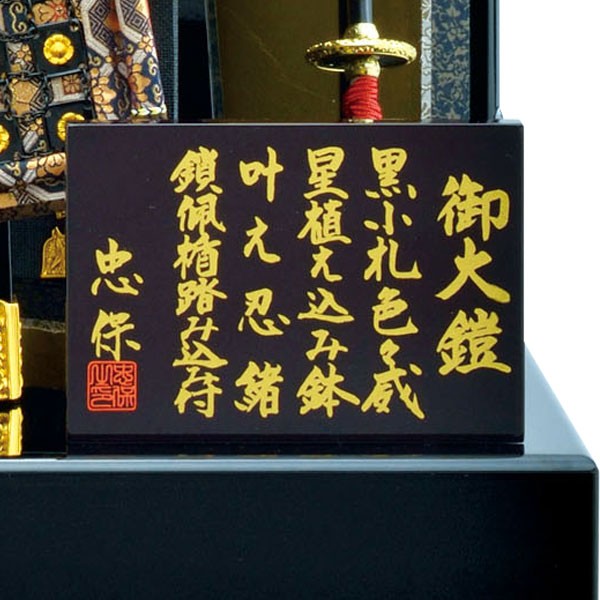 御大鎧
黒小札色々威
星植え込み鉢
叶え忍緒
鎖佩楯踏み込み付
忠保